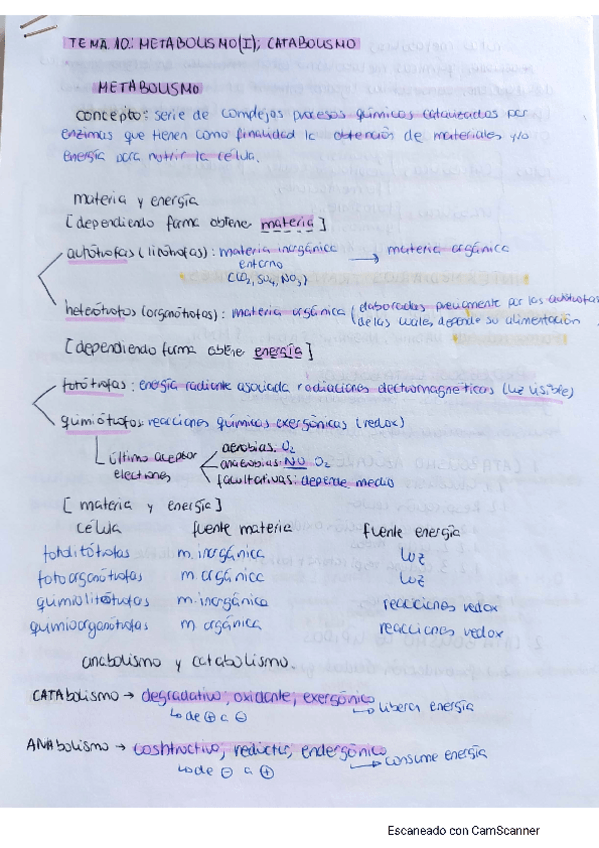 TEMA 10: METABOLISMO(I); CATABOLISMO
METABOLISMO
concepto: serie de complejos procesos químicos catalizados por
enzimas que tienen como finalidad la obtención de materiales y/o
energía para nutrir la célula.
materia y energía
[dependiendo forma obtiene materia]
autótrofas (litótrofas): materia inorgánica → materia orgánica
entorno
(CO2, SO4, NO3)
heterótrofos (organótrofos): materia orgánica (elaboradas previamente por las autótrofas
de las cuales, depende su alimentación
[dependiendo forma obtiene energía]
fotótrofas: energía radiante asociada radiaciones electromagnéticas (luz visible)
quimiótrofos: reacciones químicas exergónicas (redox)
último aceptor
electrones
aerobias: O2
anaerobias: NO O2
facultativas: depende medio
[materia y energía]
célula fuente materia fuente energía
fotolitótrofas m. inorgánica luz
fotoorganótrofas m. orgánica luz
quimiolitótrofas m. inorgánica reacciones redox
quimioorganótrofas m. orgánica reacciones redox
anabolismo y catabolismo.
CATAbolismo → degradativo, oxidante, exergónico
↳ de ⊕ a ⊖ ↳ libera energía
ANAbolismo → constructivo, reductor, endergónico
↳ de ⊖ a ⊕ → consume energía
Escaneado con CamScanner